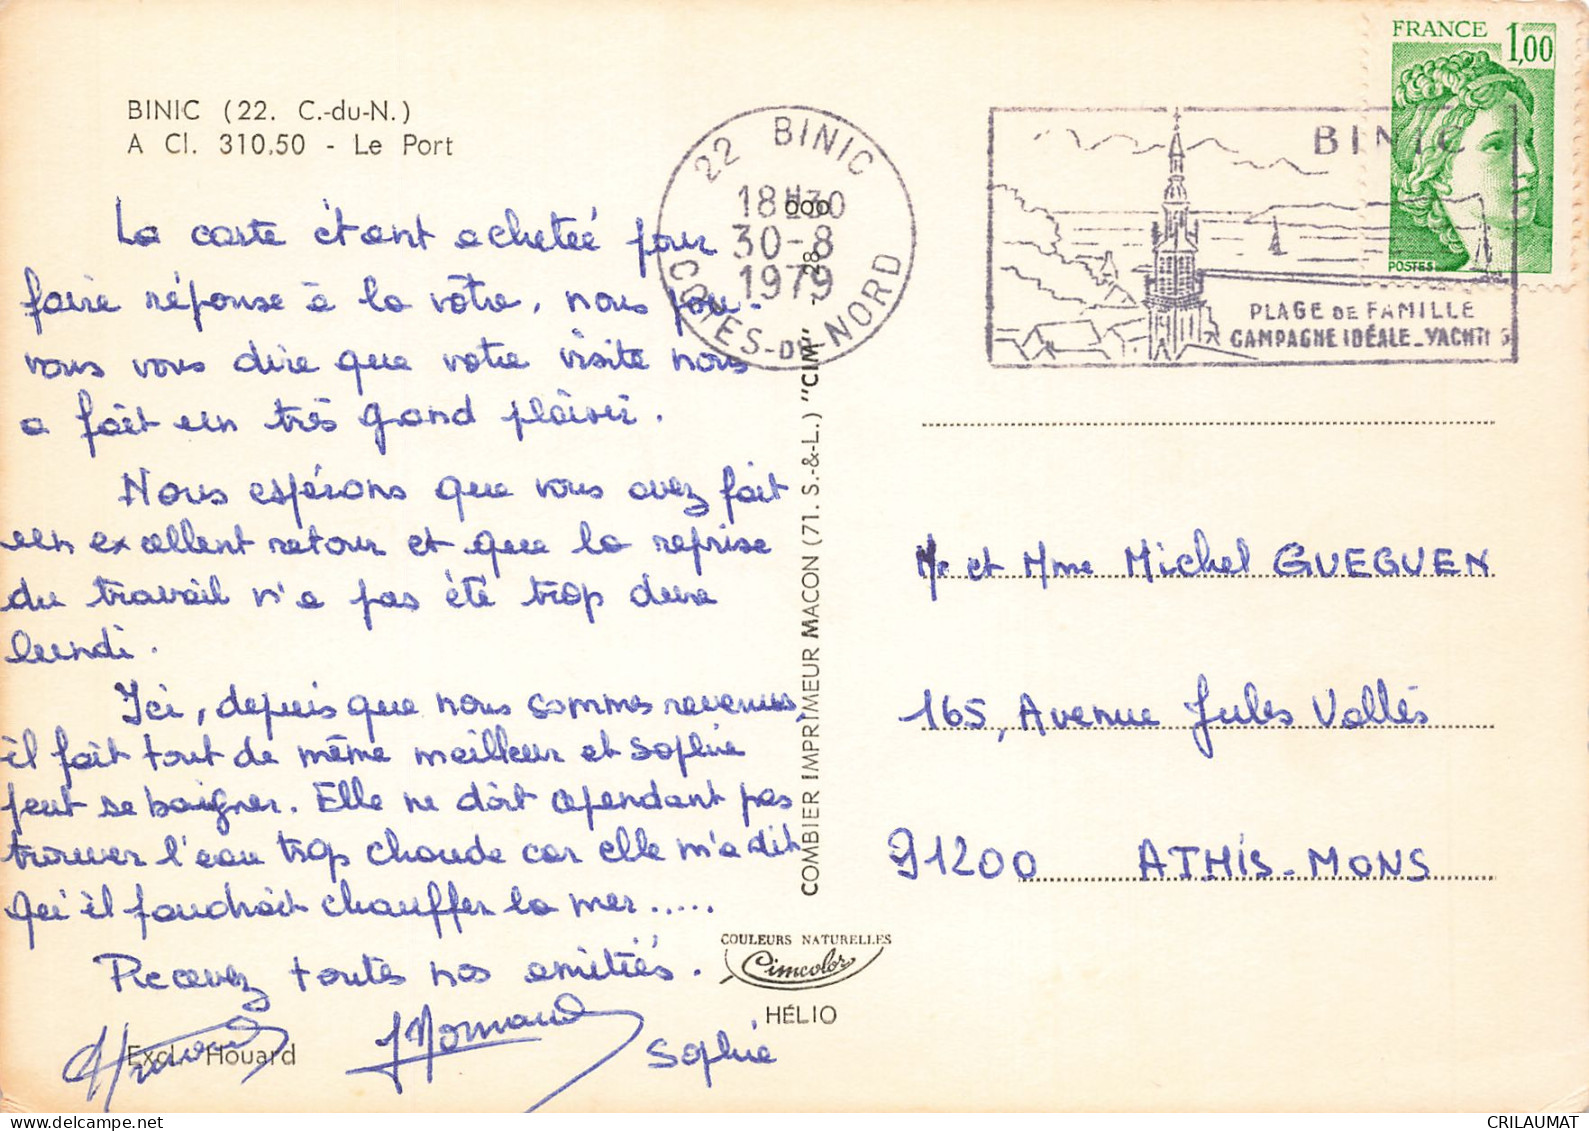 BINIC (22. C.-du-N.)
A Cl. 310.50 - Le Port
La carte étant achetée pour
faire réponse à la vôtre, nous pou-
vons vous dire que votre visite nous
a fait un très grand plaisir.
Nous espérons que vous avez fait
un excellent retour et que la reprise
du travail n'a pas été trop dure
lundi.
Ici, depuis que nous sommes revenus,
il fait tout de même meilleur et Sophie
peut se baigner. Elle ne doit cependant pas
trouver l'eau trop chaude car elle m'a dit
qu'il faudrait chauffer la mer.....
Recevez toutes nos amitiés.
Sophie
Excl. Houard
22 BINIC
18H30
30-8
1979
COTES-DU-NORD
BINIC
PLAGE DE FAMILLE
CAMPAGNE IDÉALE_YACHTI G
FRANCE 1,00
POSTES
COMBIER IMPRIMEUR MACON (71. S.-&-L.) "CIM" - 28 - 000
COULEURS NATURELLES
Cimcolor
HÉLIO
Mr et Mme Michel GUEGUEN
165, Avenue Jules Vallès
91200 ATHIS-MONS
CRILAUMAT